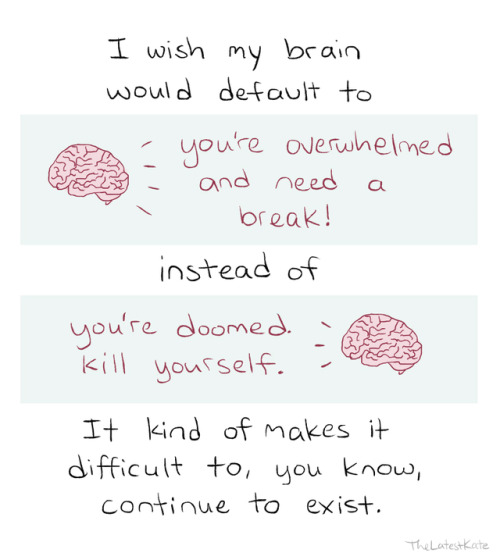 I wish my brain
would default to
you're overwhelmed
and need a
break!
instead of
you're doomed.
kill yourself.
It kind of makes it
difficult to, you know,
continue to exist.
TheLatestKate